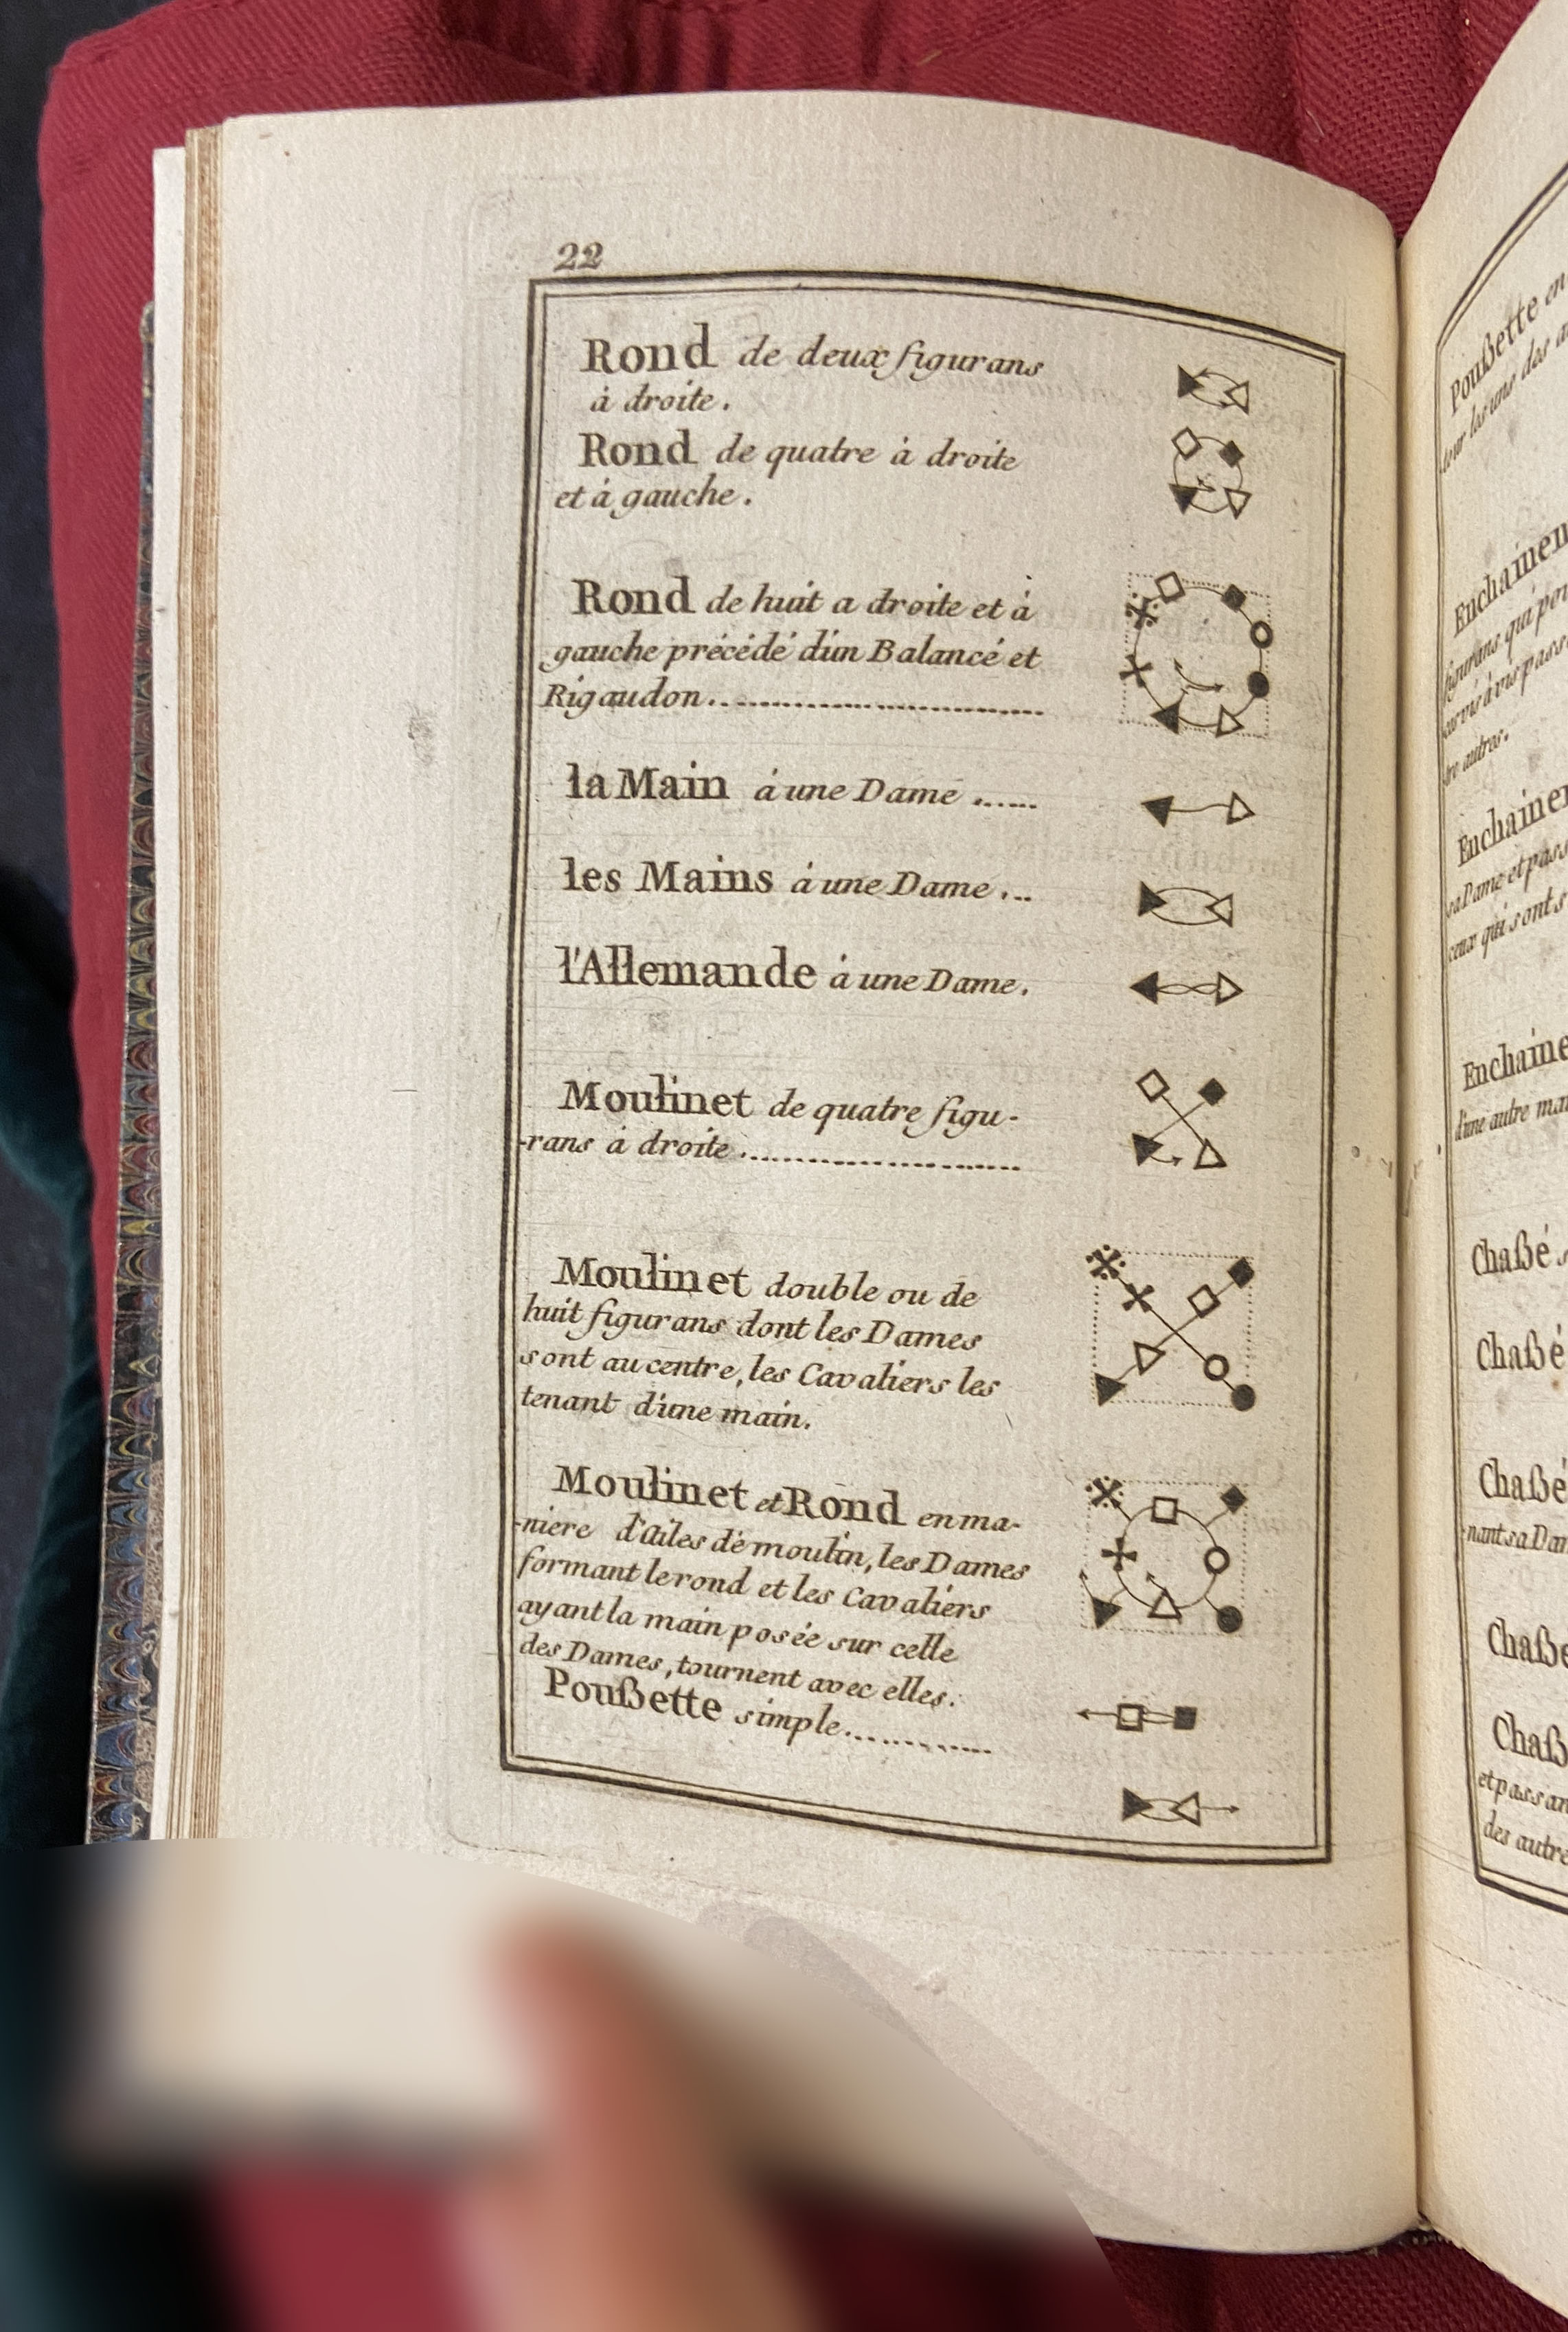 22
Rond de deux figurans
à droite.
Rond de quatre à droite
et à gauche.
Rond de huit a droite et à
gauche précédé d'un Balancé et
Rigaudon..............................
la Main à une Dame ......
les Mains à une Dame...
l'Allemande à une Dame.
Moulinet de quatre figu-
-rans à droite.........................
Moulinet double ou de
huit figurans dont les Dames
sont au centre, les Cavaliers les
tenant d'une main.
Moulinet et Rond en ma-
-niere d'Ailes de moulin, les Dames
formant le rond et les Cavaliers
ayant la main posée sur celle
des Dames, tournent avec elles.
Poußette simple.............
Poußette en
tour les uns des
Enchaînen
figurans qui
vis à vis pass
tre autres.
Enchainer
sa Dame et pass
ceux qui sont s
Enchaine
d'une autre ma
Chaßé s
Chaßé
Chaßé
-nant sa Da
Chaße
Chaß
et passan
des autre